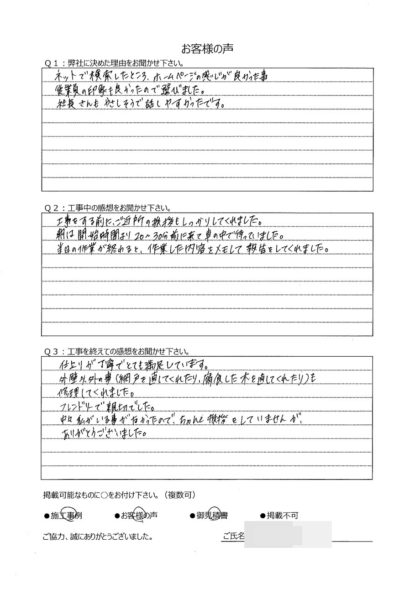 お客様の声
Q1：弊社に決めた理由をお聞かせ下さい。
ネットで検索したところ、ホームページの感じが良かった事
営業員の印象も良かったので選びました。
社長さんもやさしそうで話しやすかったです。
Q2：工事中の感想をお聞かせ下さい。
工事をする前に、ご近所の挨拶をしっかりしてくれました。
朝は開始時間より20～30分前に来て車の中で待っていました。
当日の作業が終わると、作業した内容をメモして報告をしてくれました。
Q3：工事を終えての感想をお聞かせ下さい。
仕上りが丁寧でとても満足しています。
外壁以外の事（網戸を直してくれたり、腐食した木を直してくれたり）も
修理してくれました。
フレンドリーで親切でした。
中々私がいる事がなかったので、ちゃんと挨拶をしていませんが、
ありがとうございました。
掲載可能なものに○をお付け下さい。（複数可）
●施工事例 ●お客様の声 ●御見積書 ●掲載不可
ご協力、誠にありがとうございました。 ご氏名